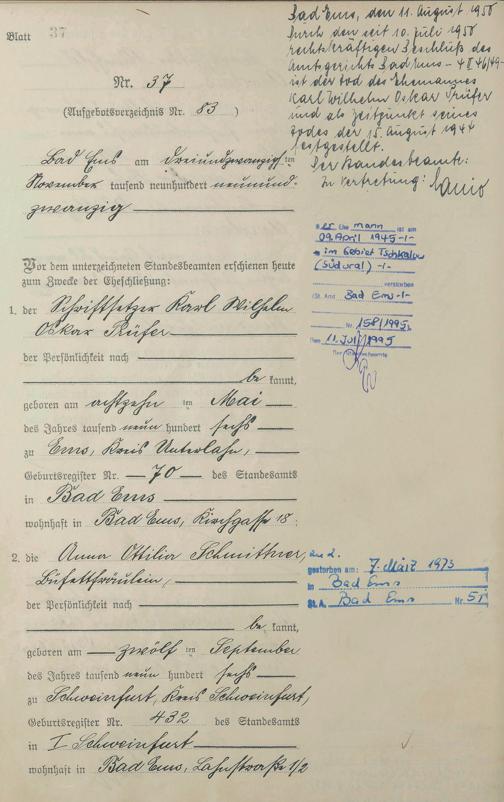 Blatt 37
Nr. 37
(Aufgebotsverzeichnis Nr. 83)
Bad Ems am dreiundzwanzig ten
November tausend neunhundert neunund-
zwanzig
Vor dem unterzeichneten Standesbeamten erschienen heute
zum Zwecke der Eheschließung:
1. der Schriftsetzer Karl Wilhelm
Oskar Prüfer
der Persönlichkeit nach
be kannt,
geboren am achtzehn ten Mai
des Jahres tausend neun hundert sechs
zu Ems, Kreis Unterlahn,
Geburtsregister Nr. 70 des Standesamts
in Bad Ems
wohnhaft in Bad Ems, Kirchgasse 18;
2. die Anna Ottilia Schmittner,
Büfettfräulein,
der Persönlichkeit nach
be kannt,
geboren am zwölf ten September
des Jahres tausend neun hundert sechs
zu Schweinfurt, Kreis Schweinfurt,
Geburtsregister Nr. 432 des Standesamts
in I Schweinfurt
wohnhaft in Bad Ems, Lahnstraße 1/2
Bad Ems, den 11. August 1950
Durch den seit 10. Juli 1950
rechtskräftigen Beschluß des
Amtsgerichts Bad Ems - 4 II 46/49 -
ist der Tod des Ehemannes
Karl Wilhelm Oskar Prüfer
und als Zeitpunkt seines
Todes der 15. August 1944
festgestellt.
Der Standesbeamte:
In Vertretung:
Der Ehe mann ist am
09. April 1945 -/-
im Gebiet Tschkalow
(Südural) -/-
verstorben
(St. Amt Bad Ems -/-
Nr. 158/1995)
Den 11. Juli 1995
Der Standesbeamte
gestorben am: 7. März 1973
in Bad Ems
St. A. Bad Ems Nr. 51